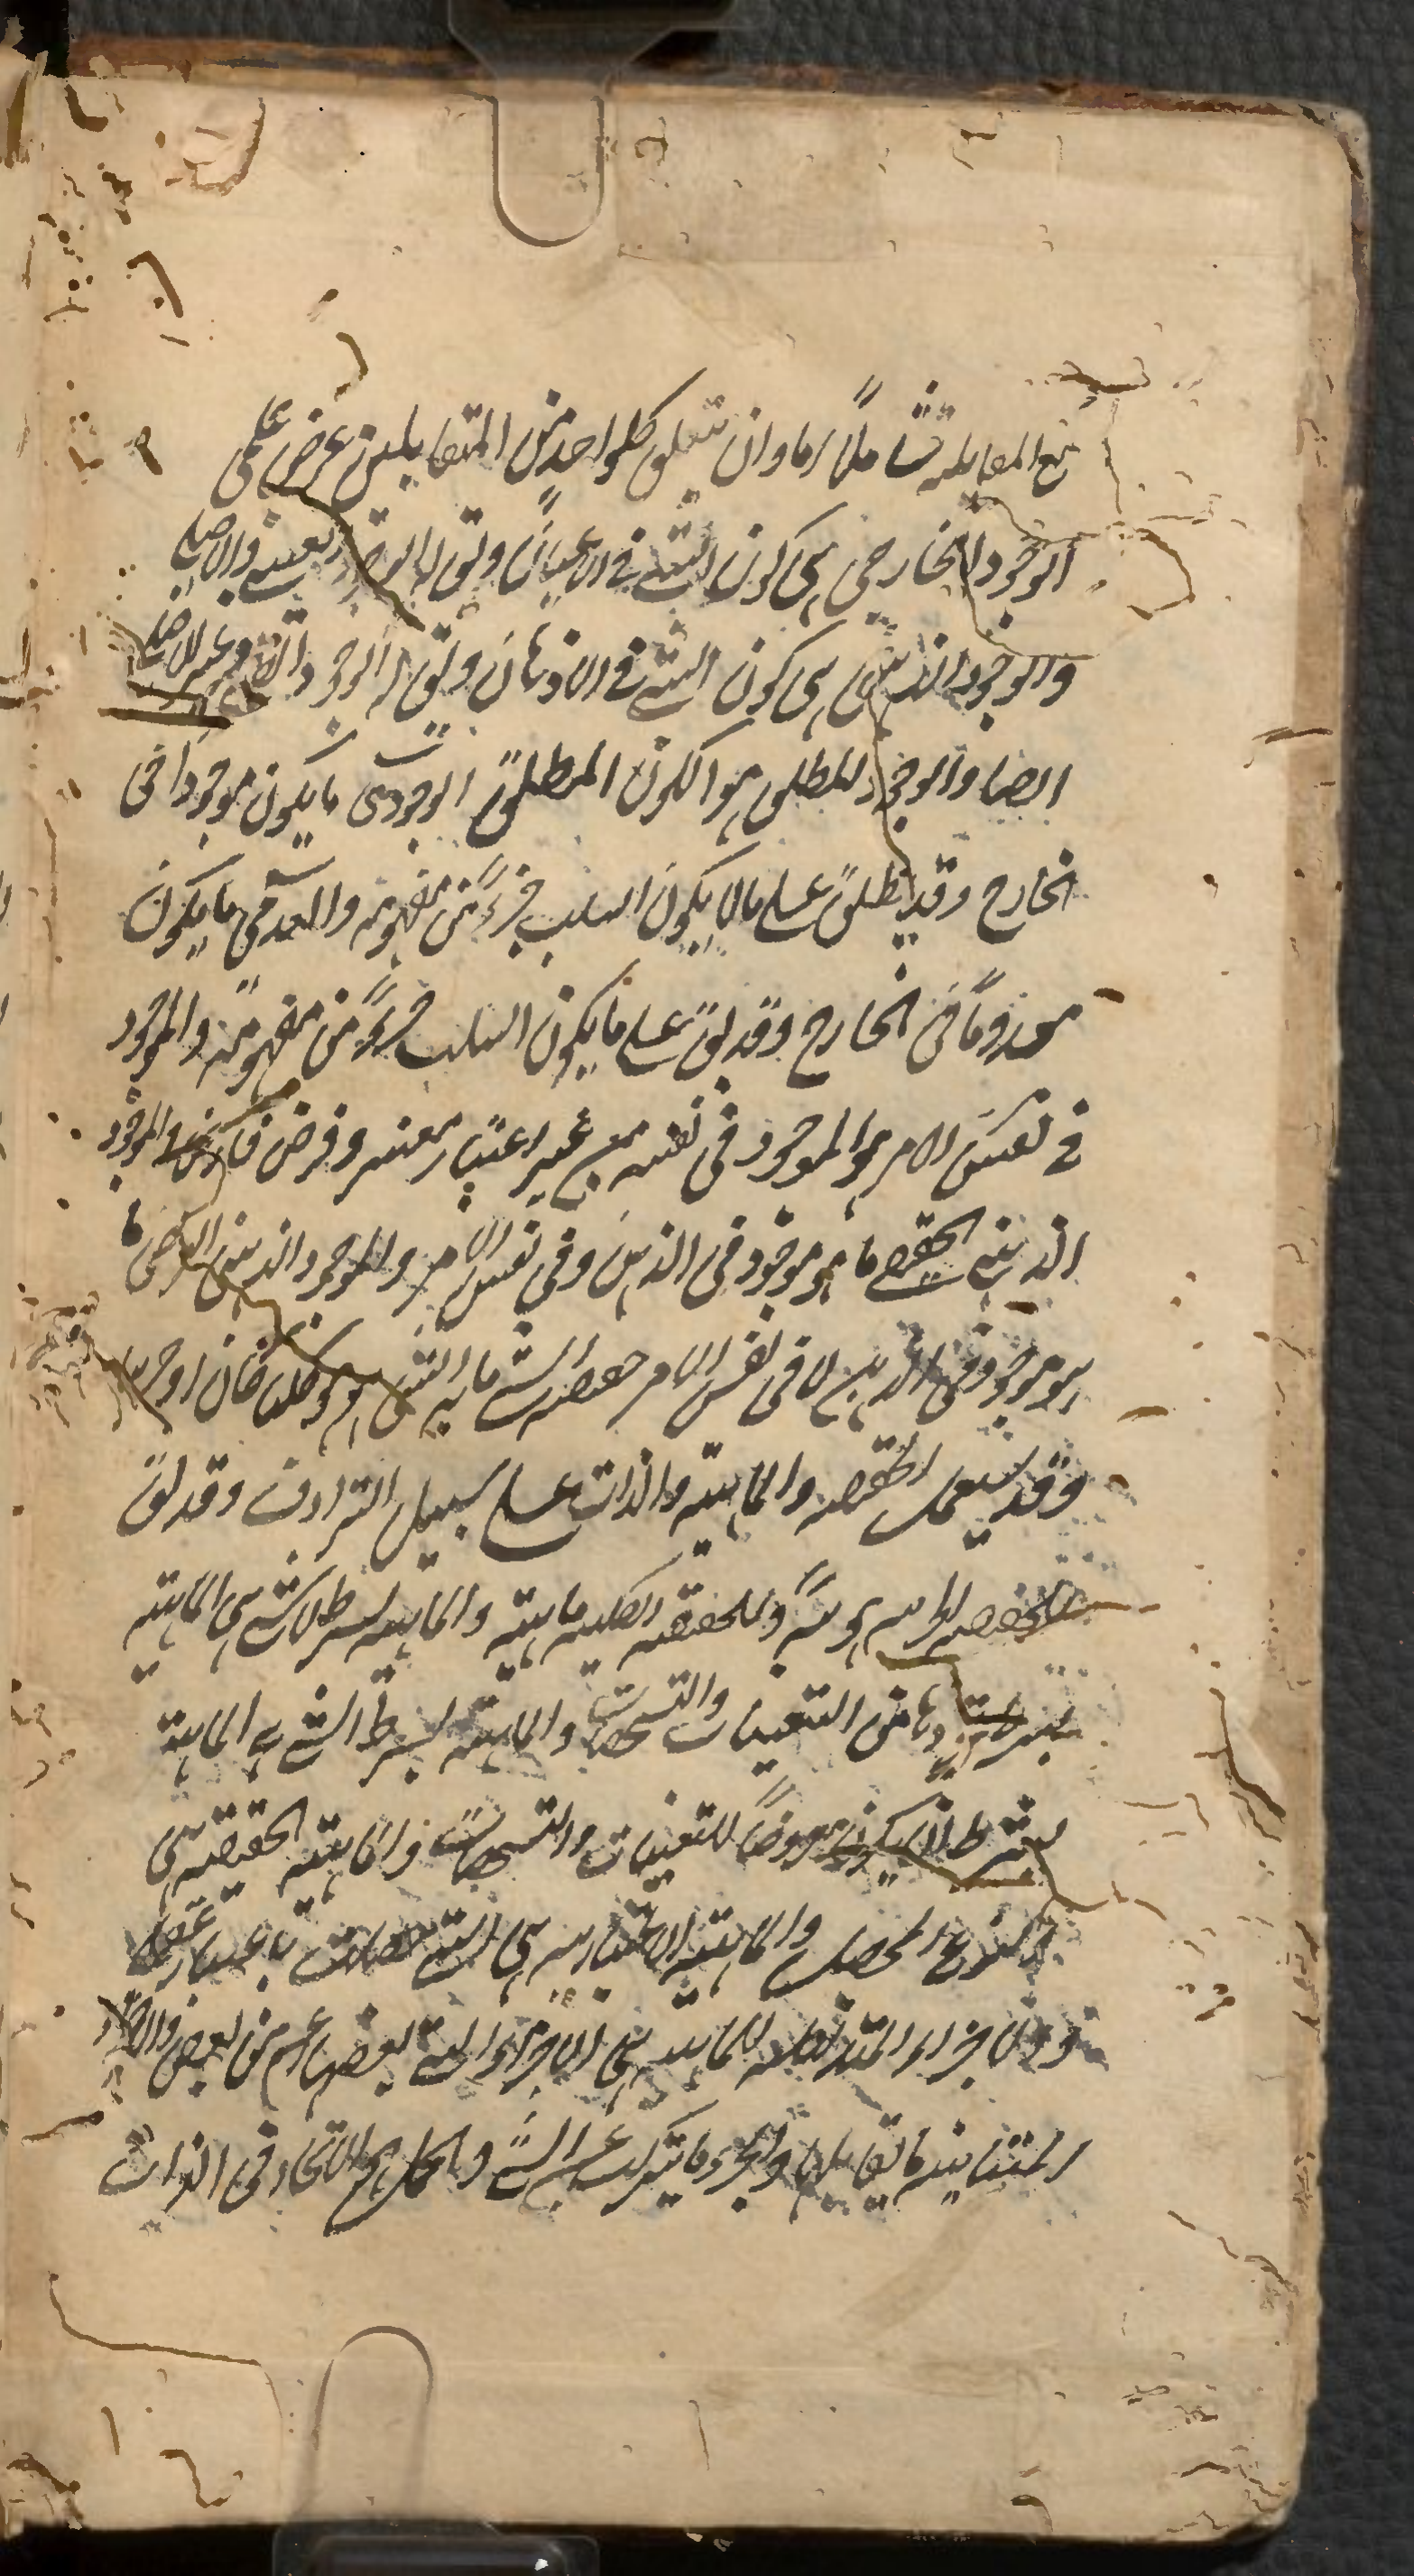 مع المقابله شاملا لهما وان يتعلق كلواحد من المتقابلين غرض علمى
الوجود الخارجى هى كون الشئ فى الاعيان ويق له الوجود العينى والاصلى
والوجود الذهنى هى كون الشئ فى الاذهان ويق له الوجود الظلى وغير الاصلى
ايضا والوجود المطلق هو الكون المطلق الوجودى ما يكون موجودا فى
الخارج وقد يطلق على مالا يكون السلب جزءً من مفهومه والعدمى ما يكون
معدوماً فى الخارج وقد يق على ما يكون السلب جزءً من مفهومه والموجود
فى نفس الامر هو الموجود فى نفسه من غير اعتبار معتبر وفرض فارض والموجود
الذهنى الحقيقى ما هو موجود فى الذهن وفى نفس الامر والموجود الذهنى الفرضى ما
هو موجود فى الذهن لا فى نفس الامر حقيقه الشئ ما به الشئ هو هو كليا كان او جزئيا
وقد يستعمل الحقيقه والماهيته والذات على سبيل الترادف وقد يق
للحقيقه الجزئيه هويةً وللحقيقه الكليه ماهيته والماهيه بشرط لا شئ هى الماهيته
بشرط تجردها من التعينات والتشخصات والماهيته بشرط الشئ هى الماهيته
بشرط ان يكون معروضاً للتعينات والتشخصات والماهيته الحقيقيه هى
النوع المحصل والماهيته الاعتباريه هى التى حصلت باعتبار عقلى
والاجزاء المتداخله للماهيه هى الاجزاء التى بعضها اعم من بعض والاجزاء
المتباينه ما يقابلها والجزء ما يتركب عنه الشئ والحمل هو الاتحاد فى الذات